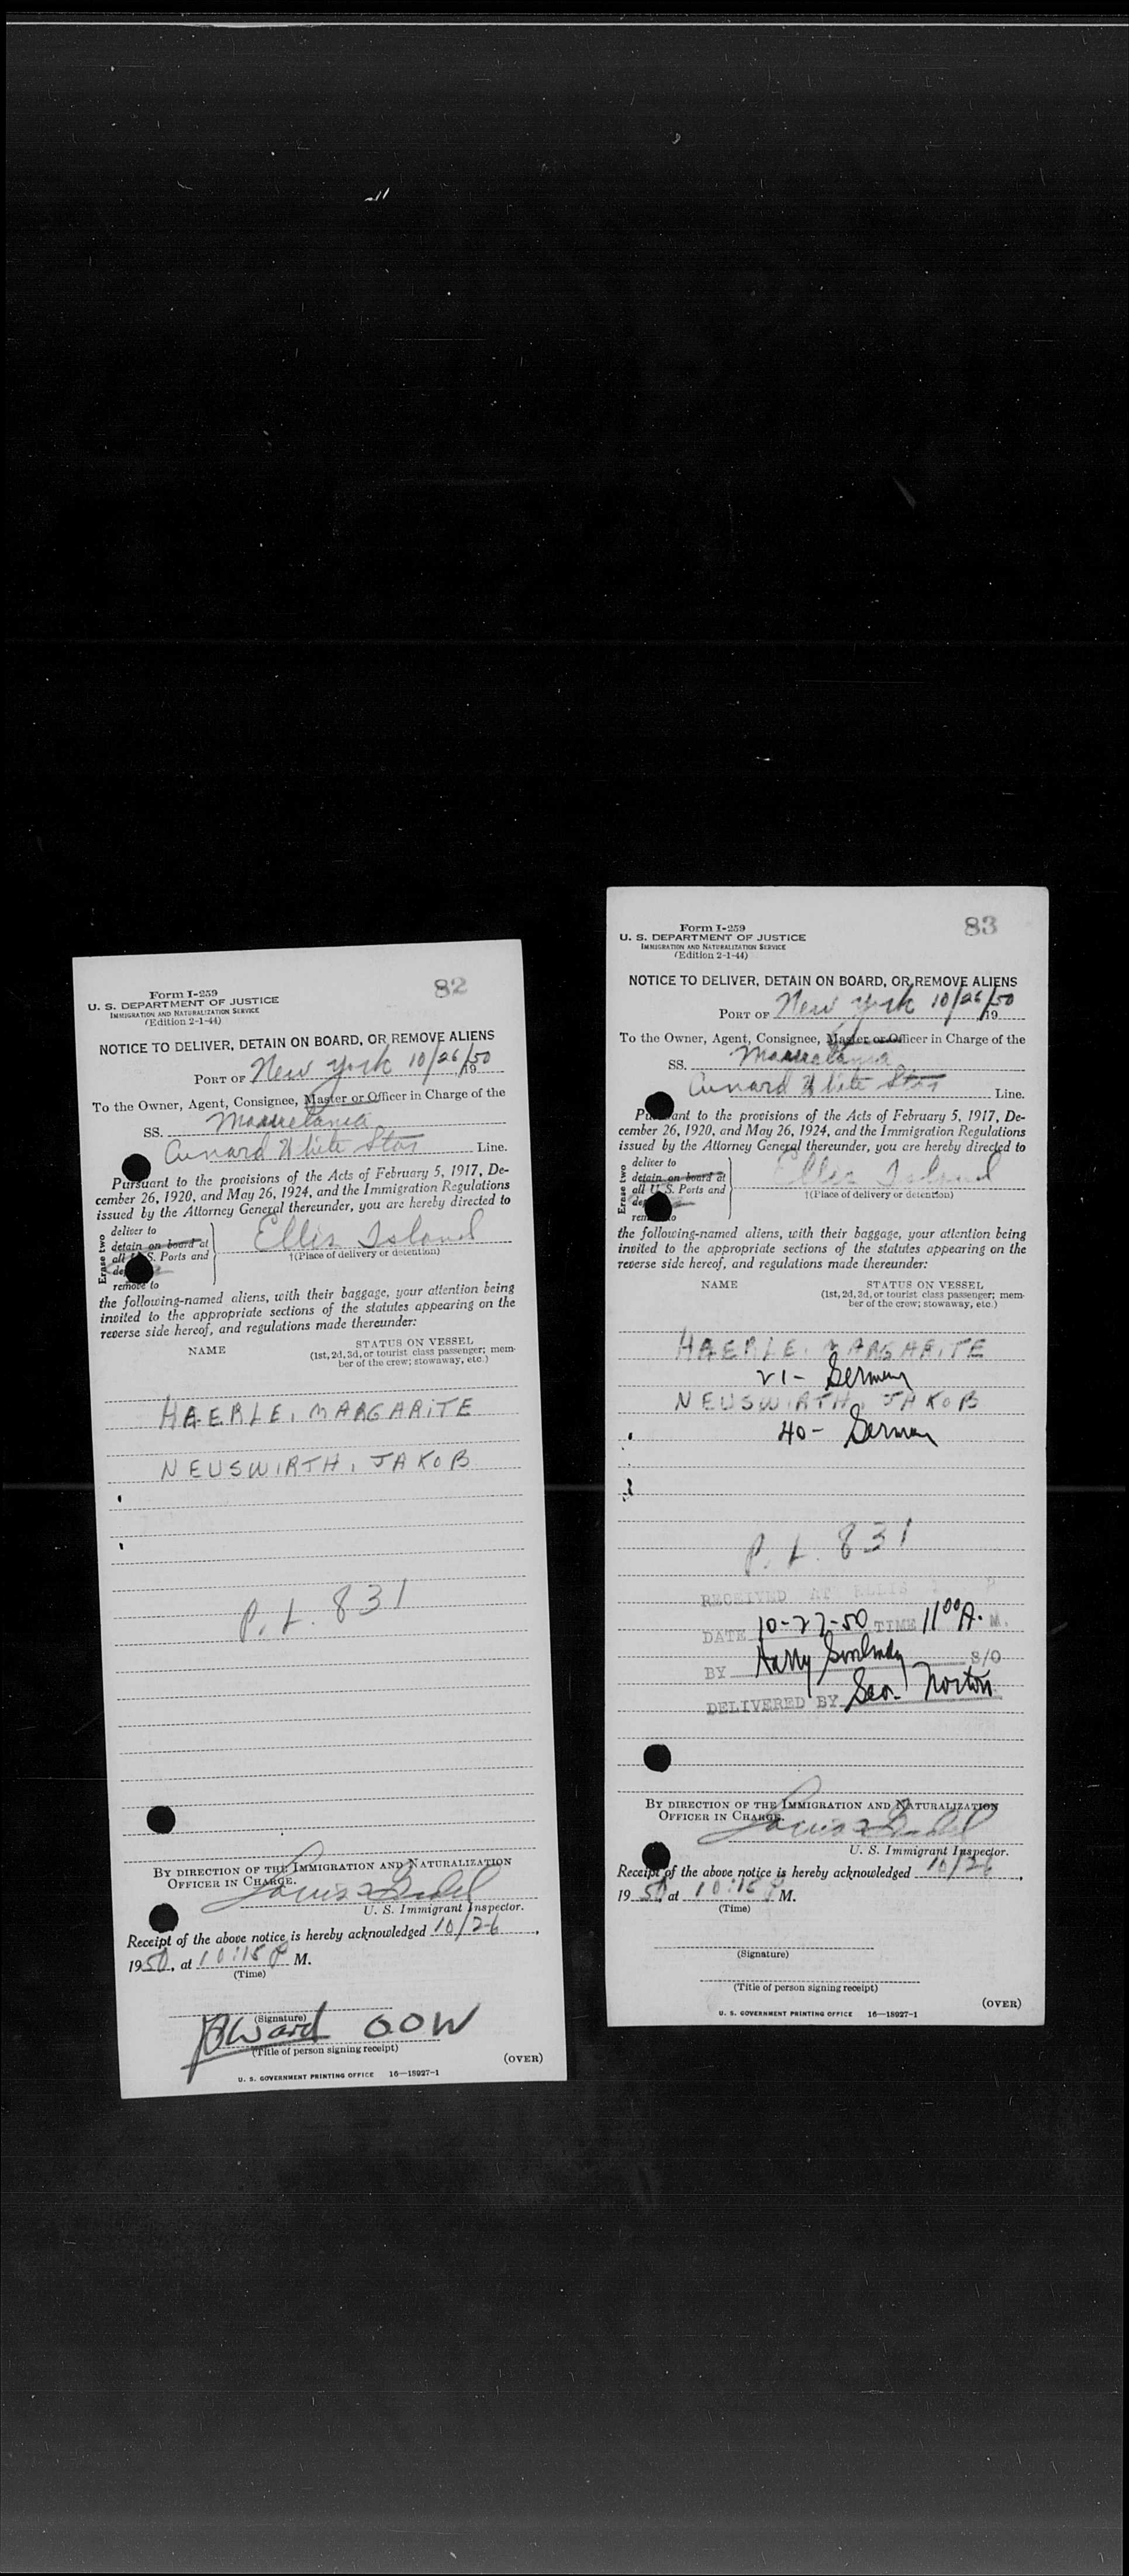 82
Form I-259
U. S. DEPARTMENT OF JUSTICE
IMMIGRATION AND NATURALIZATION SERVICE
(Edition 2-1-44)
NOTICE TO DELIVER, DETAIN ON BOARD, OR REMOVE ALIENS
PORT OF New York 10/26/50 19
To the Owner, Agent, Consignee, Master or Officer in Charge of the
SS. Mauretania
Cunard White Star Line.
Pursuant to the provisions of the Acts of February 5, 1917, De-
cember 26, 1920, and May 26, 1924, and the Immigration Regulations
issued by the Attorney General thereunder, you are hereby directed to
Erase two
deliver to
detain on board at
all U. S. Ports and
remove to
Ellis Island
†(Place of delivery or detention)
the following-named aliens, with their baggage, your attention being
invited to the appropriate sections of the statutes appearing on the
reverse side hereof, and regulations made thereunder:
NAME STATUS ON VESSEL
(1st, 2d, 3d, or tourist class passenger; mem-
ber of the crew; stowaway, etc.)
HAERLE, MARGARITE
NEUSWIRTH, JAKOB
P. L. 831
BY DIRECTION OF THE IMMIGRATION AND NATURALIZATION
OFFICER IN CHARGE.
Louis
U. S. Immigrant Inspector.
Receipt of the above notice is hereby acknowledged 10/26,
1950, at 10:15 P M.
(Time)
(Signature)
Ward OOW
(Title of person signing receipt)
(OVER)
U. S. GOVERNMENT PRINTING OFFICE 16—18927-1
83
Form I-259
U. S. DEPARTMENT OF JUSTICE
IMMIGRATION AND NATURALIZATION SERVICE
(Edition 2-1-44)
NOTICE TO DELIVER, DETAIN ON BOARD, OR REMOVE ALIENS
PORT OF New York 10/26/50 19
To the Owner, Agent, Consignee, Master or Officer in Charge of the
SS. Mauretania
Cunard White Star Line.
Pursuant to the provisions of the Acts of February 5, 1917, De-
cember 26, 1920, and May 26, 1924, and the Immigration Regulations
issued by the Attorney General thereunder, you are hereby directed to
Erase two
deliver to
detain on board at
all U. S. Ports and
remove to
Ellis Island
†(Place of delivery or detention)
the following-named aliens, with their baggage, your attention being
invited to the appropriate sections of the statutes appearing on the
reverse side hereof, and regulations made thereunder:
NAME STATUS ON VESSEL
(1st, 2d, 3d, or tourist class passenger; mem-
ber of the crew; stowaway, etc.)
HAERLE, MARGARITE
21- German
NEUSWIRTH, JAKOB
40- German
P. L. 831
RECEIVED AT ELLIS
DATE 10-27-50 TIME 11 00 A. M.
BY Harry S/O
DELIVERED BY Geo. Norton
BY DIRECTION OF THE IMMIGRATION AND NATURALIZATION
OFFICER IN CHARGE.
Louis
U. S. Immigrant Inspector.
Receipt of the above notice is hereby acknowledged 10/26,
1950 at 10:15 P M.
(Time)
(Signature)
(Title of person signing receipt)
(OVER)
U. S. GOVERNMENT PRINTING OFFICE 16—18927-1